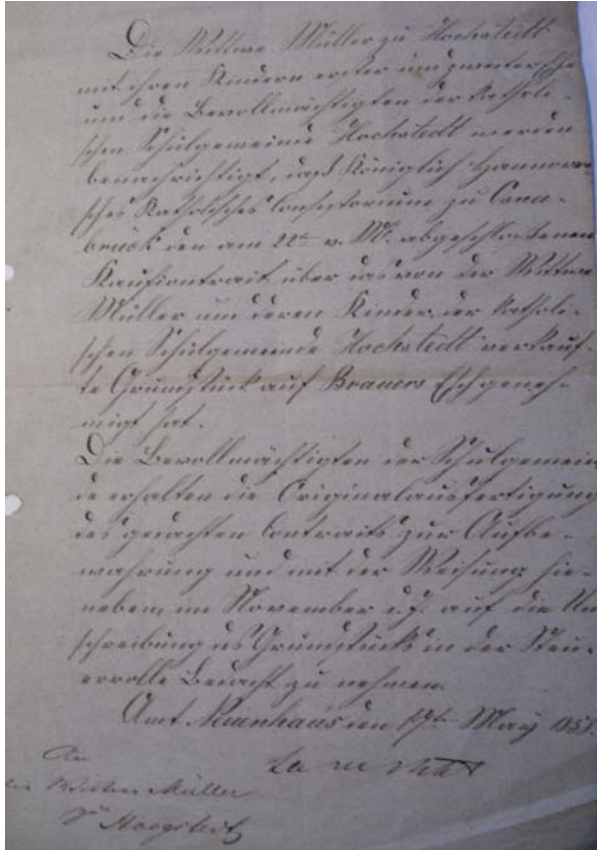 Die Wittwe Müller zu Hochstedt
mit ihren Kindern erster und zweiter Ehe
und die Bevollmächtigten der katholi-
schen Schulgemeinde Hochstedt werden
benachrichtigt, daß Königlich Hannover-
sches Katholisches Consistorium zu Osna-
brück den am 22t v. M. abgeschlossenen
Kaufcontract über das von der Wittwe
Müller und deren Kinder der katholi-
schen Schulgemeinde Hochstedt verkauf-
te Grundstück auf Brauers Esch geneh-
migt hat.
Die Bevollmächtigten der Schulgemein
de erhalten die Originalausfertigung
des gedachten Contracts zur Aufbe-
wahrung und mit der Weisung hie-
neben, im November d. J. auf die Um
schreibung des Grundstücks in der Steu-
errolle Bedacht zu nehmen.
Amt Neuenhaus den May
An
die Wittwe Müller
Hoogstedt